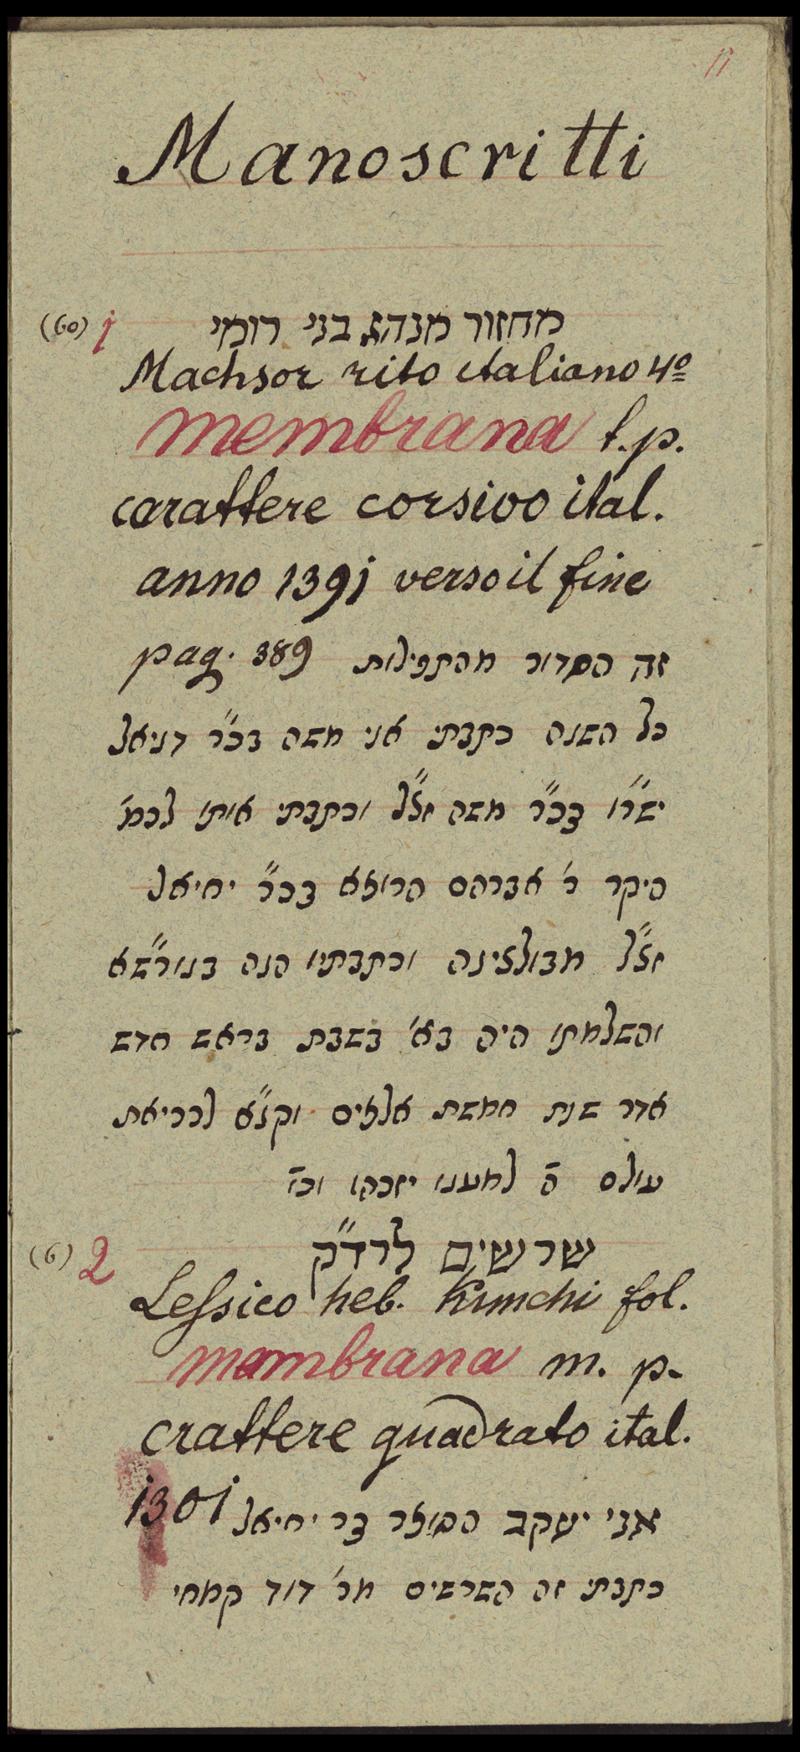 11
Manoscritti
(60) 1 מחזור מנהג בני רומי
Machsor rito italiano 4º
membrana t.p.
carattere corsivo ital.
anno 1391 verso il fine
pag. 389 זה הסדור מהתפילות
כל השנה כתבתי אני משה בכ״ר דניאל
יש״ו בכ״ר משה זצ״ל וכתבתי אותו לכמ׳
היקר ר׳ אברהם הרופא בכ״ר יחיאל
זצ״ל מבולצינה וכתבתיו הנה בנור״שא
והשלמתו היה בא׳ בשבת בראש חדש
אדר שנת חמשת אלפים וקנ״א לבריאת
עולם ה׳ למענו יזכהו וכו׳
(6) 2 שרשים לרד״ק
Lessico heb. Kimchi fol.
mambrana m. p.
crattere quadrato ital.
1301 אני יעקב הסופר בר יחיאל
כתבתי זה השרשים מר׳ דוד קמחי